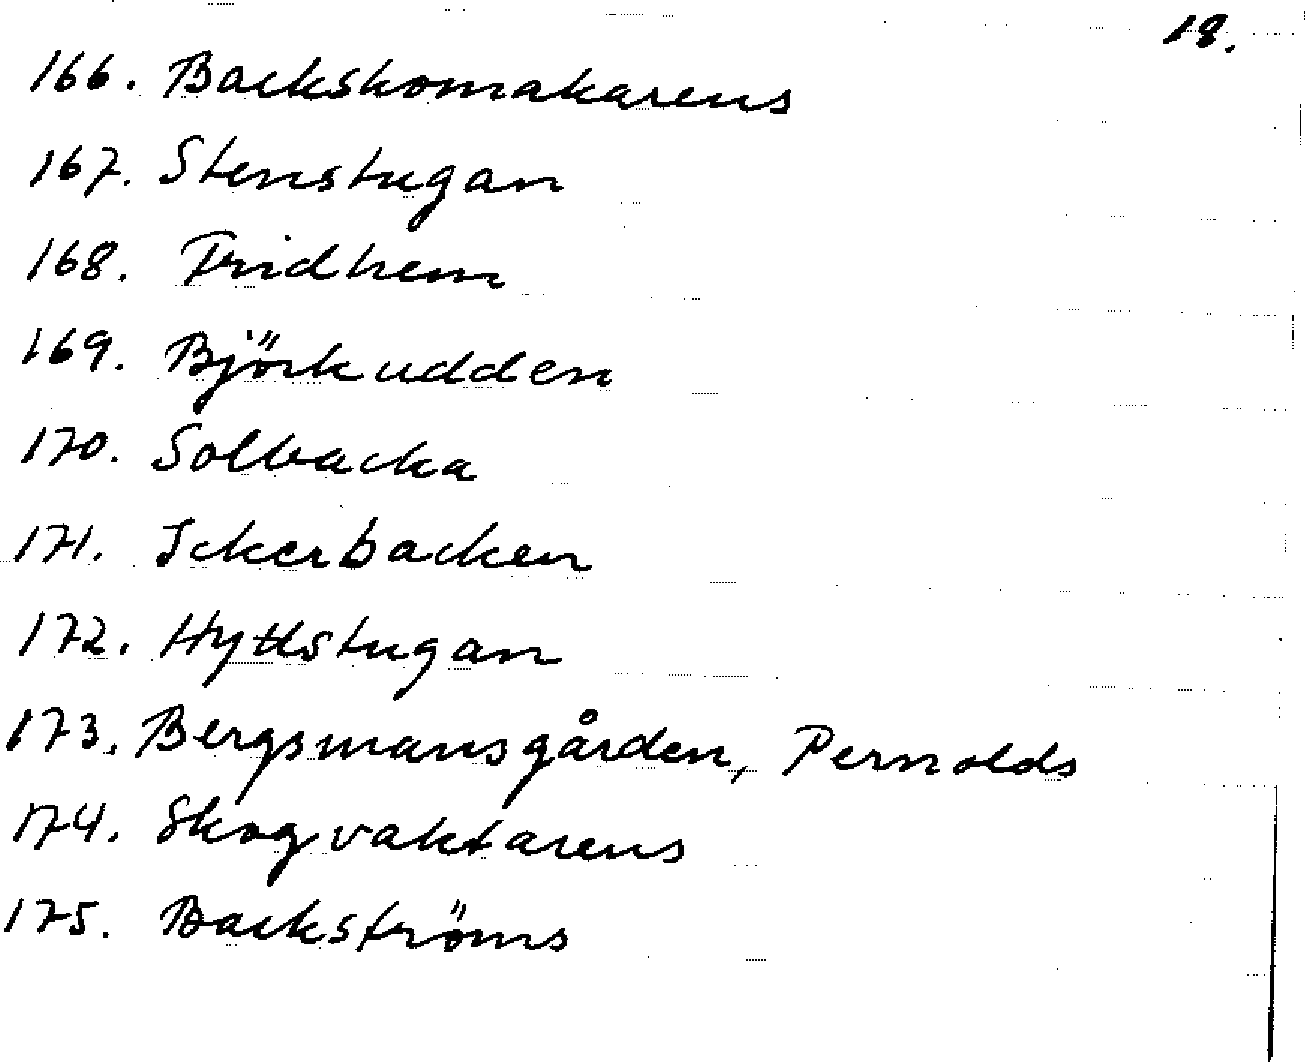 18.
166. Backskomakarens
167. Stenstugan
168. Fridhem
169. Björkudden
170. Solbacka
171. Ickerbacken
172. Hyttstugan
173. Bergsmansgården, Pernolds
174. Skogvaktarens
175. Backströms